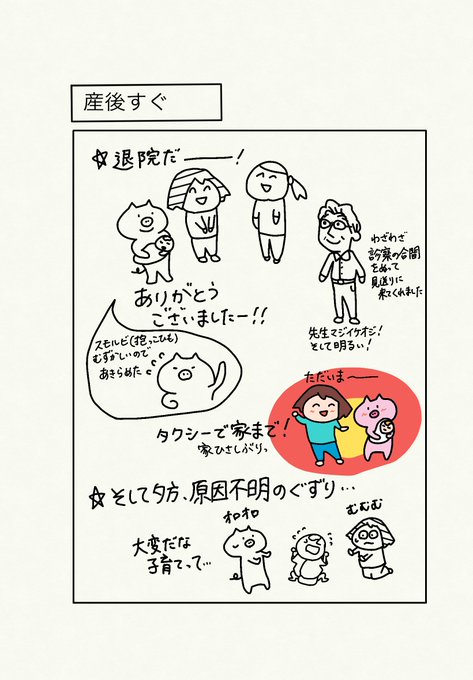 産後すぐ
☆退院だー!
わざわざ
診察の合間
をぬって
見送りに
来てくれました
ありがとう
ございましたー!!
先生マジイケオジ!
そして明るい!
スモルビ(抱っこひも)
むずかしいので
あきらめた
ただいまー
タクシーで家まで!
家ひさしぶりっ
☆そして夕方、原因不明のぐずり…
オロオロ
むむむ
大変だな
子育てって…